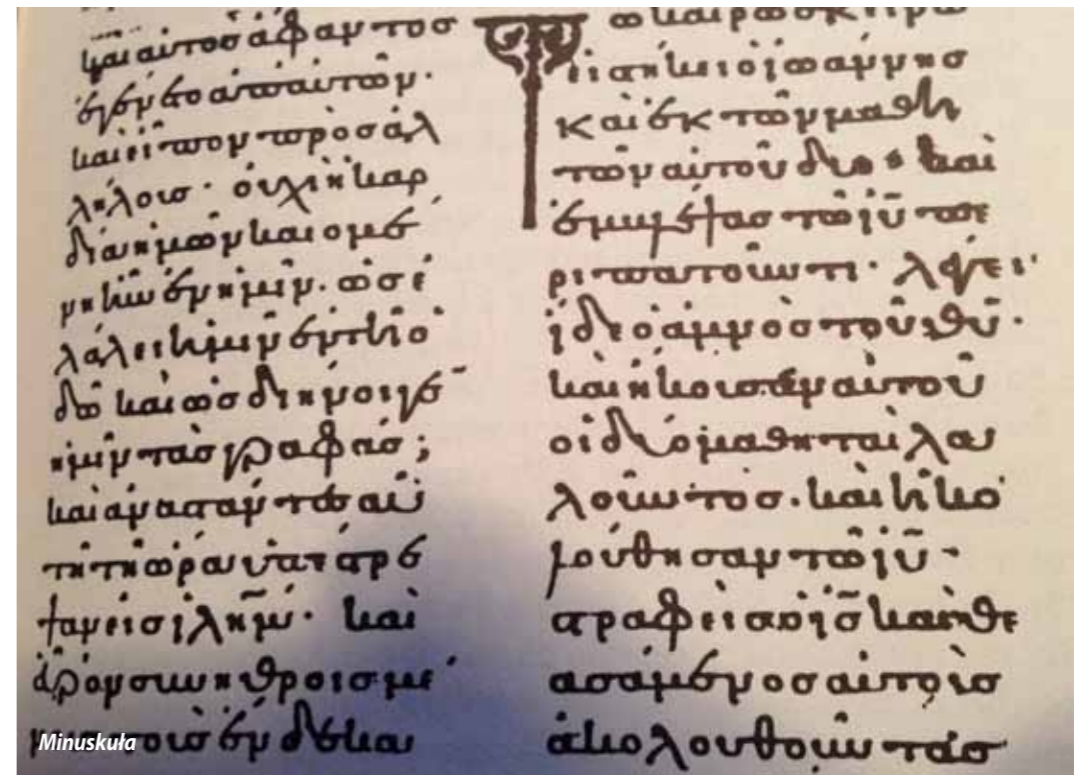 καὶ αὐτὸς ἄφαντος
ἐγένετο ἀπαυτῶν·
καὶ εἶπον πρὸς ἀλ
λήλους· οὐχὶ ἡ καρ
δία ἡμῶν καιομέ
νη ἦν ἐν ἡμῖν· ὡς ἐ
λάλει ἡμῖν ἐν τῇ ὁ
δῶ καὶ ὡς διήνοιγε
ἡμῖν τὰς γραφάς;
καὶ ἀναστάντες αὐ
τῇ τῇ ὥρα ὑπέστρε
ψαν εἰς ἱλῆμ· καὶ
εὗρον συνηθροισμέ
τοὺς ἕνδεκα
Τ
ῶ καιρῶ
εἱστήκει ὁ ἰωάννης
καὶ ἐκ τῶν μαθη
τῶν αὐτοῦ δύο· καὶ
ἐμβλέψας τῶ ἰῦ πε
ριπατοῦντι· λέγει·
ἴδε ὁ ἀμνὸς τοῦ θῦ·
καὶ ἤκουσαν αὐτοῦ
οἱ δύο μαθηταὶ λα
λοῦντος· καὶ ἠκο
λούθησαν τῶ ἰῦ·
στραφεὶς ὁ ἰς καὶ θε
ασάμενος αὐτοὺς
ἀκολουθοῦντας
Minuskuła